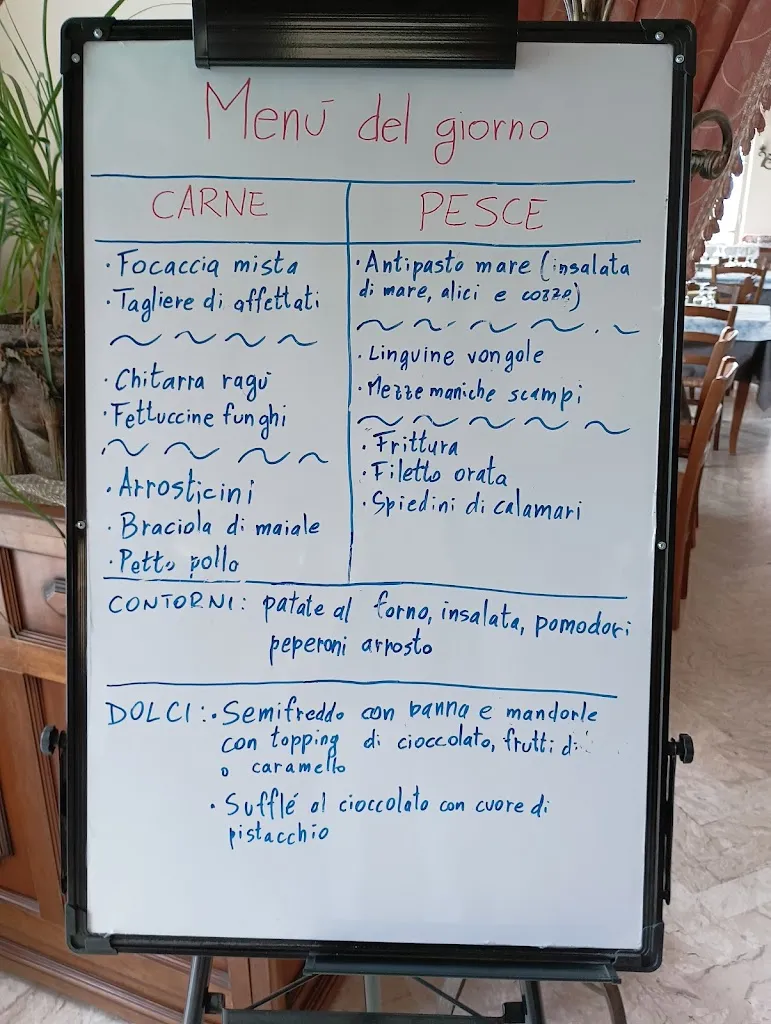 Menú del giorno
CARNE
· Focaccia mista
· Tagliere di affettati
· Chitarra ragù
· Fettuccine funghi
· Arrosticini
· Braciola di maiale
· Petto pollo
PESCE
· Antipasto mare (insalata
di mare, alici e cozze)
· Linguine vongole
· Mezze maniche scampi
· Frittura
· Filetto orata
· Spiedini di calamari
CONTORNI: patate al forno, insalata, pomodori
peperoni arrosto
DOLCI: · Semifreddo con panna e mandorle
con topping di cioccolato, frutti di
o caramello
· Sufflé al cioccolato con cuore di
pistacchio